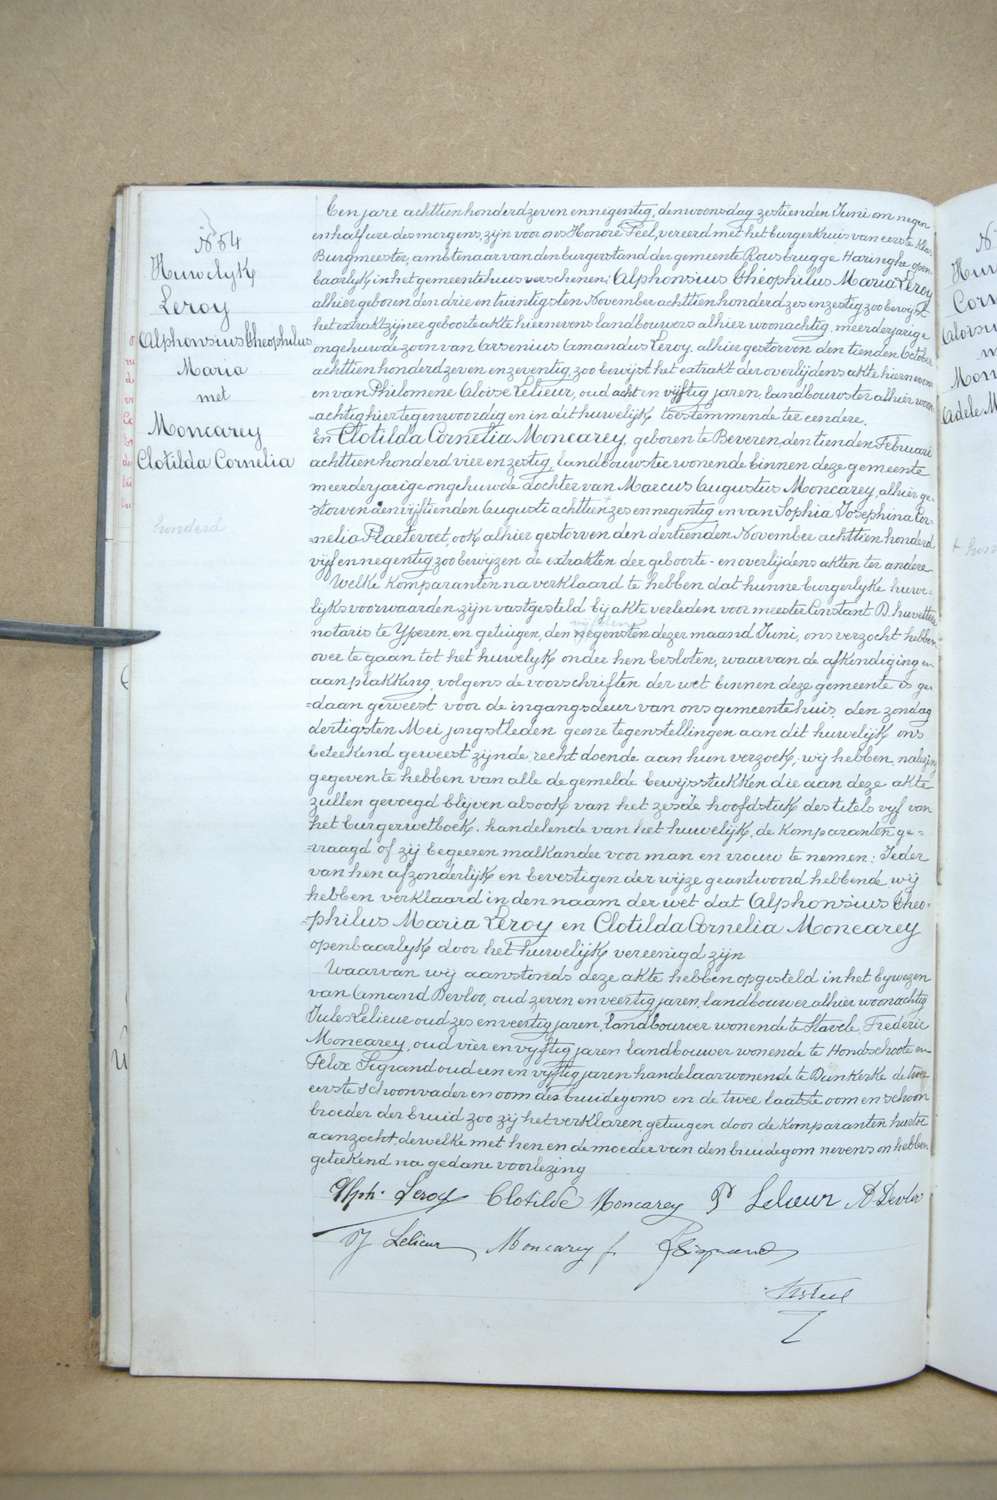 N 64
Huwelijk
Leroy
Alphonsius Théophilus
Maria
met
Moncarey
Clotilda Cornelia
honderd
Een jare achttien honderd zeven en negentig, den woensdag zestienden Juni om negen
en half ure des morgens, zijn voor ons Honoré Feel, vereerd met het burgerkruis van eerste klas
Burgmeester, ambtenaar van den burgerstand der gemeente Rousbrugge Haringhe open-
baarlyk in het gemeentehuis verschenen: Alphonsius Théophilus Maria Leroy
alhier geboren den drie en twintigsten November achttien honderd zes en zestig zoo bewyst
het extrakt zijner geboorte akte hiernevens landbouwers alhier woonachtig, meerderjarige
ongehuwde zoon van Arsenius Amandus Leroy, alhier gestorven den tienden October
achttien honderd zeven en zeventig, zoo bewijst het extrakt der overlijdens akte hiernevens
en van Philomene Aloïse Lelieur, oud acht en vijftig jaren, landbouwster alhier woon-
achtig hier tegenwoordig en in dit huwelijk toestemmende ter eendere.
En Clotilda Cornelia Moncarey, geboren te Beveren, den tienden Februari
achttien honderd vier en zestig, landbouwster wonende binnen deze gemeente
meerderjarige ongehuwde dochter van Marcus Augustus Moncarey, alhier ge-
storven den vijftienden Auguste achttien zes en negentig en van Sophia Josephina Cor-
nelia Plaetevoet, ook alhier gestorven den dertienden November achttien honderd
vijf en negentig zoo bewijzen de extrakten der geboorte- en overlijdens akten ter andere
Welke komparanten na verklaard te hebben dat hunne burgerlyke huwe-
lijks voorwaarden zijn vastgesteld bij akte verleden voor meester Constant D'huvettere
notaris te Yperen, en getuigen, den negensten dezer maand Juni, ons verzocht hebben
over te gaan tot het huwelijk onder hen besloten, waarvan de afkondiging en
aanplakking, volgens de voorschriften der wet binnen deze gemeente is ge-
=daan geweest voor de ingangsdeur van ons gemeentehuis, den zondag
dertigsten Mei jongstleden geene tegenstellingen aan dit huwelijk ons
beteekend geweest zijnde, recht doende aan hun verzoek, wij hebben, nalezing
gegeven te hebben van alle de gemelde bewijsstukken die aan deze akte
zullen gevoegd blijven alsook van het zesde hoofdstuk des titels vyf van
het burgerwetboek, handelende van het huwelijk, de komparanten ge=
=vraagd of zij begeeren malkander voor man en vrouw te nemen: Ieder
van hen afzonderlijk en bevestigen der wijze geantwoord hebbende, wij
hebben verklaard in den naam der wet dat Alphonsius Theo=
=philus Maria Leroy en Clotilda Cornelia Moncarey
openbaarlyk door het huwelijk vereenigd zijn
Waarvan wij aanstonds deze akte hebben opgesteld in het bywezen
van Amand Devloo, oud zeven en veertig jaren, landbouwer alhier woonachtig
Jules Lelieur oud zes en veertig jaren, landbouwer wonende te Stavele, Frederic
Moncarey, oud vier en vyftig jaren landbouwer wonende te Hondschoote en
Felix Sigrand oud een en vyftig jaren handelaar wonende te Dunkerke de twee
eerste schoonvader en oom des bruidegoms en de twee laatste oom en schoon
broeder der bruid zoo zij het verklaren getuigen door de komparanten hiertoe
aanzocht, dewelke met hen en de moeder van den bruidegom nevens on hebben
geteekend na gedane voorlezing
Alph. Leroy Clotilde Moncarey P Lelieur A Devloo
J Lelieur Moncarey f. F Sigrand